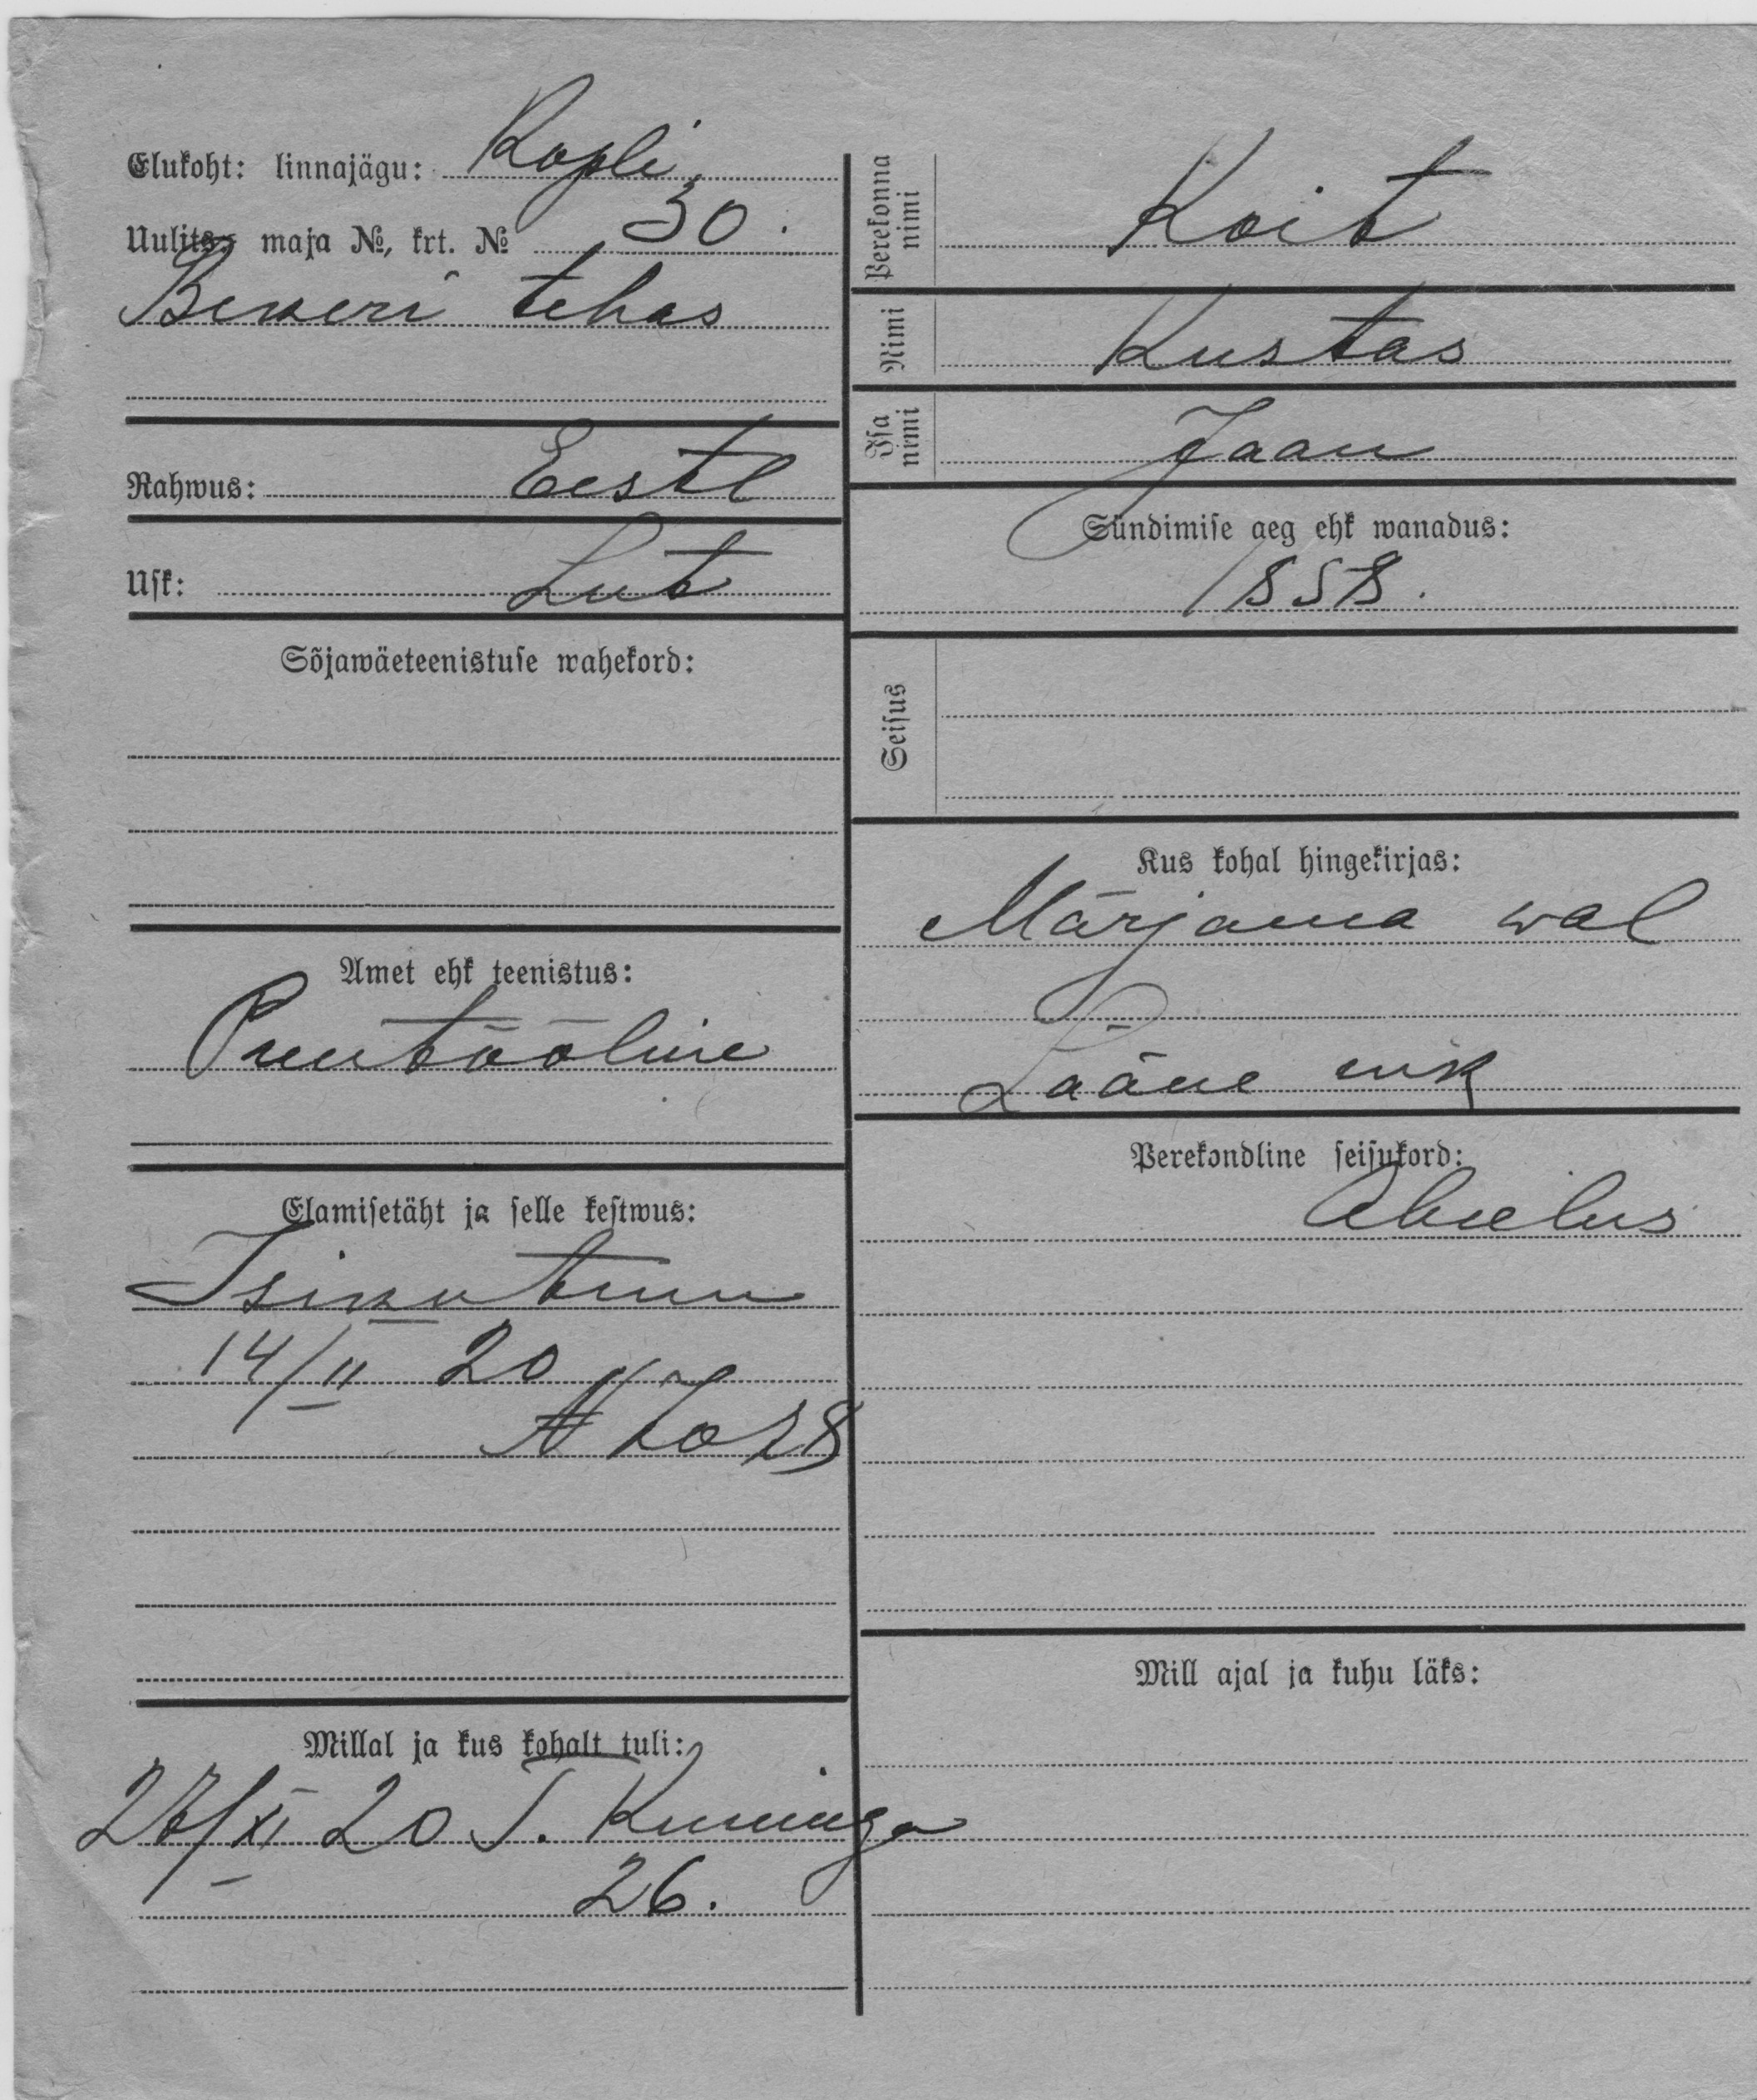 Elukoht: linnajägu: Kopli
Uulits, maja №, krt. № 30.
Bekeri tehas
Rahwus: Eestl
Usk: Lut
Sõjawäeteenistuse wahekord:
Amet ehk teenistus:
Puutööline
Elamisetäht ja selle kestwus:
Isikutunn
14/II 20
№ 7028
Millal ja kus kohalt tuli:
27/XI 20 S. Kuninga
26.
Perekonna nimi
Koit
Nimi
Kustas
Isa nimi
Jaan
Sündimise aeg ehk wanadus:
1858.
Seisus
Kus kohal hingekirjas:
Märjama wal
Lääne mk
Perekondline seisukord:
Abielus
Mill ajal ja kuhu läks: